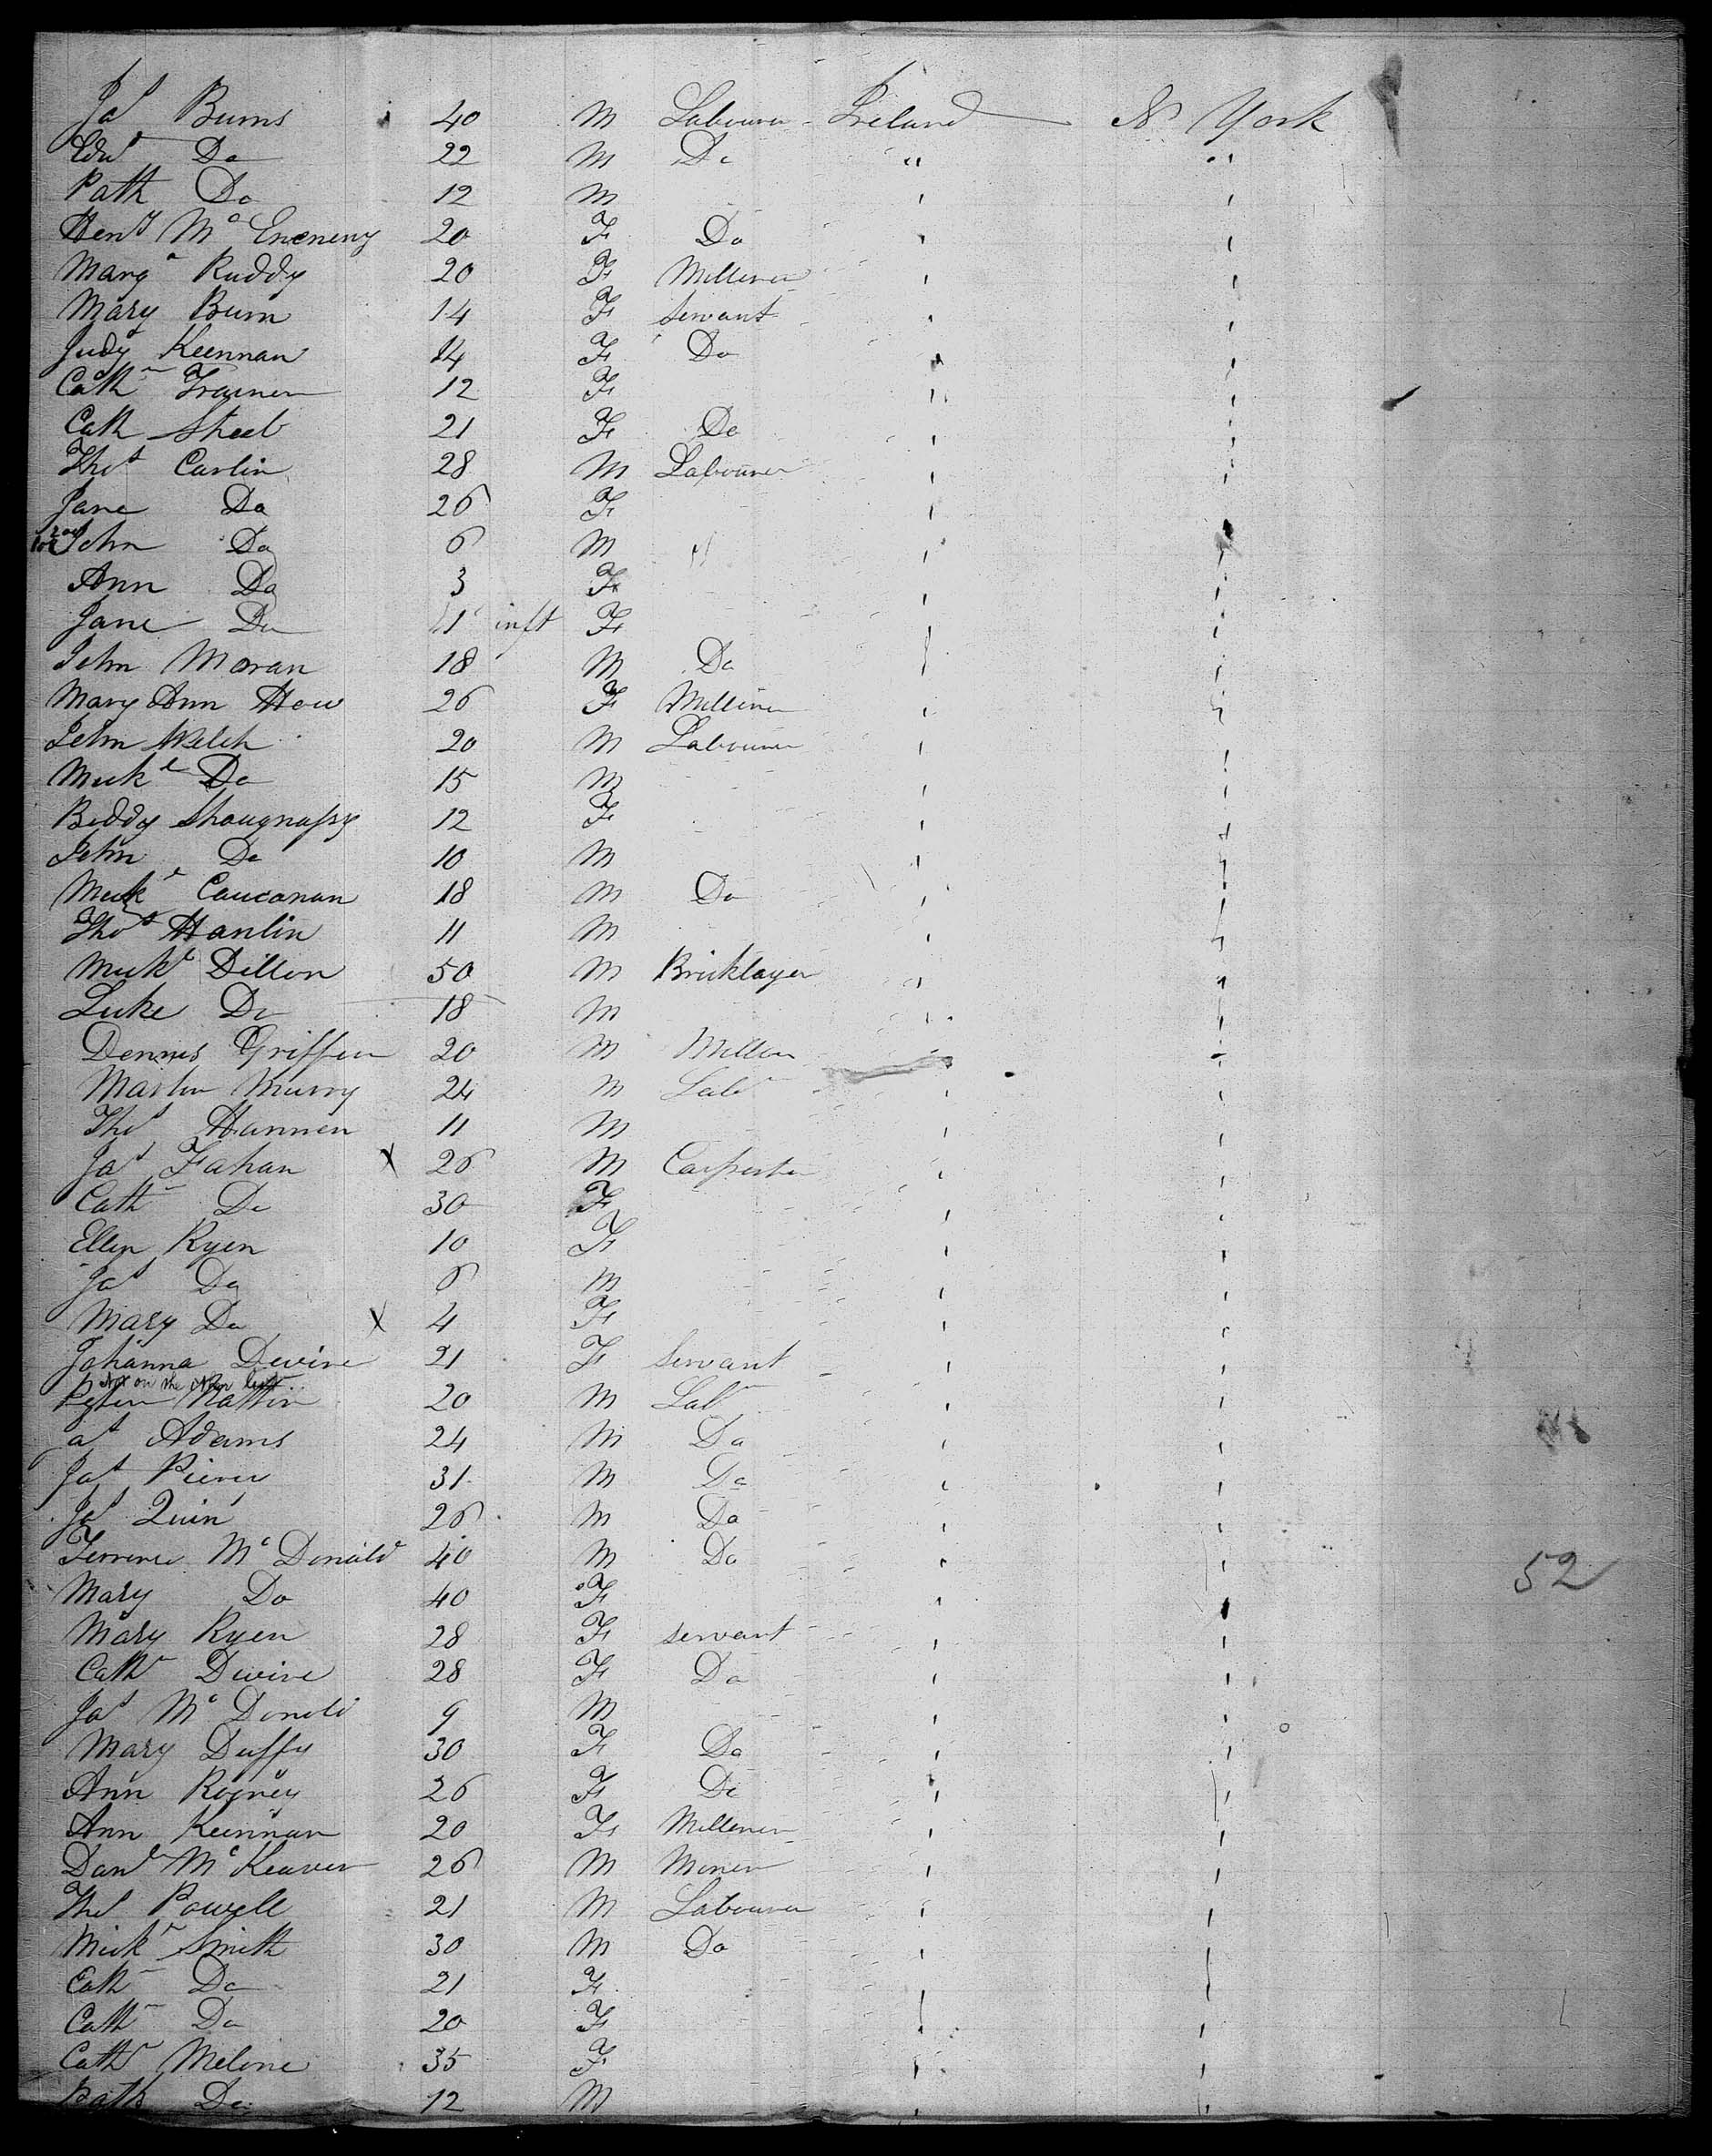 Jas Burns 40 M Labourer Ireland N York
Edwd Do 22 M Do " "
Patk Do 12 M
Heny Mc Eneneny 20 F Do
Margt Ruddy 20 F Milliner
Mary Burn 14 F Servant
Judy Keennan 14 F Do
Cathn Trainer 12 F
Cath Steel 21 F Do
Thos Carlin 28 M Labourer
Jane Do 26 F
John Do 6 M
Ann Do 3 F
Jane Do 1 inft F
John Moran 18 M Do
Mary Ann How 26 F Milliner
John Welch 20 M Labourer
Mickl Do 15 M
Biddy Shaugnassy 12 F
John Do 10 M
Mickl Caucanan 18 M Do
Thos Hanlin 11 M
Mickl Dillon 50 M Bricklayer
Luke Do 18 M
Dennis Griffen 20 M
Martin Murry 24 M Labr
Thos Hannen 11 M
Jas Fahan X 26 M Carpenter
Cathn Do 30 F
Ellen Ryen 10 F
Jas Do 6 M
Mary Do X 4 F
Johanna Devine 21 F Servant
on the
20 M Labr
as Adams 24 M Do
Jas 31 M Do
Jas Quin 26 M Do
Terrence Mc Donald 40 M Do
Mary Do 40 F
52
Mary Ryen 28 F servant
Cathn Divine 28 F Do
Jas Mc Donald 9 M
Mary Duffy 30 F Do
Ann 26 F Do
Ann Keennan 20 F Millener
Danl Mc Keaver 26 M Miner
Thos Powell 21 M Labourer
Mickl Smith 30 M Do
Cathn Do 21 F
Cathn Do 20 F
Cathn Melone 35 F
Patk Do 12 M